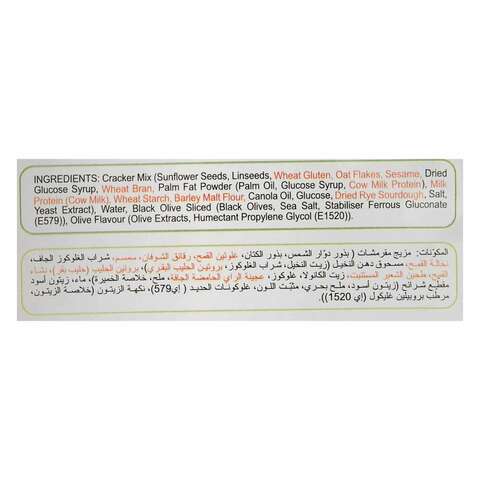 INGREDIENTS: Cracker Mix (Sunflower Seeds, Linseeds, Wheat Gluten, Oat Flakes, Sesame, Dried
Glucose Syrup, Wheat Bran, Palm Fat Powder (Palm Oil, Glucose Syrup, Cow Milk Protein), Milk
Protein (Cow Milk), Wheat Starch, Barley Malt Flour, Canola Oil, Glucose, Dried Rye Sourdough, Salt,
Yeast Extract), Water, Black Olive Sliced (Black Olives, Sea Salt, Stabiliser Ferrous Gluconate
(E579)), Olive Flavour (Olive Extracts, Humectant Propylene Glycol (E1520)).
المكوّنات: مزيج مقرمشات ( بذور دوّار الشمس، بذور الكتان، غلوتين القمح، رقائق الشوفان، سمسم، شراب الغلوكوز الجاف،
نخالة القمح، مسحوق دهن النخيل (زيت النخيل، شراب الغلوكوز، بروتين الحليب البقري)، بروتين الحليب (حليب بقر)، نشاء
القمح، طحين الشعير المستنبت، زيت الكانولا، غلوكوز، عجينة الراي الحامضة الجافة، ملح، خلاصة الخميرة)، ماء، زيتون أسود
مقطّع شرائح (زيتون أسود، ملح بحري، مثبّت اللون، غلوكونات الحديد (إي579)، نكهة الزيتون (خلاصة الزيتون،
مرطّب بروبيلين غليكول (إي 1520)).